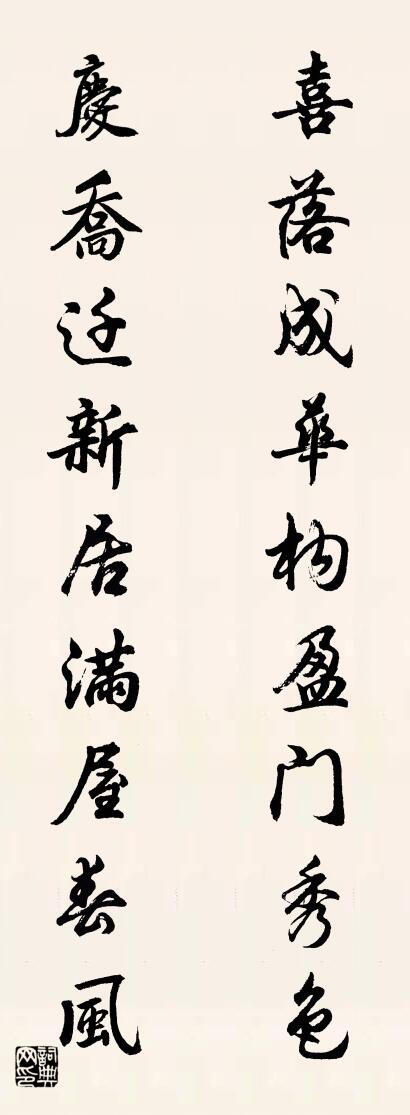 喜落成华构盈门秀色
慶喬迁新居满屋春風
詞典网印